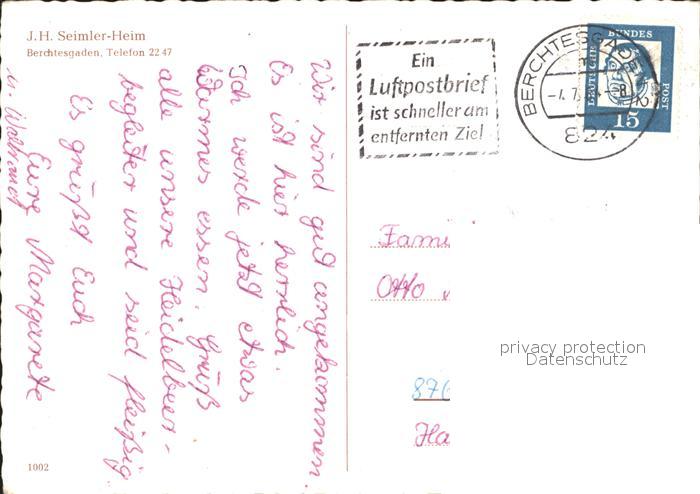 J.H. Seimler-Heim
Berchtesgaden, Telefon 22 47
Wir sind gut angekommen.
Es ist hier herrlich.
Ich werde jetzt etwas
Warmes essen. Grüß
alle unsere Heidelbeer-
begleiter und seid fleißig.
Es grüßt Euch
Eure Margarete
u. Waltraud
1002
Ein
Luftpostbrief
ist schneller am
entfernten Ziel
BERCHTESGADEN 2
824
DEUTSCHE BUNDES POST
15
Fami
Otto
privacy protection
Datenschutz
876
Ha